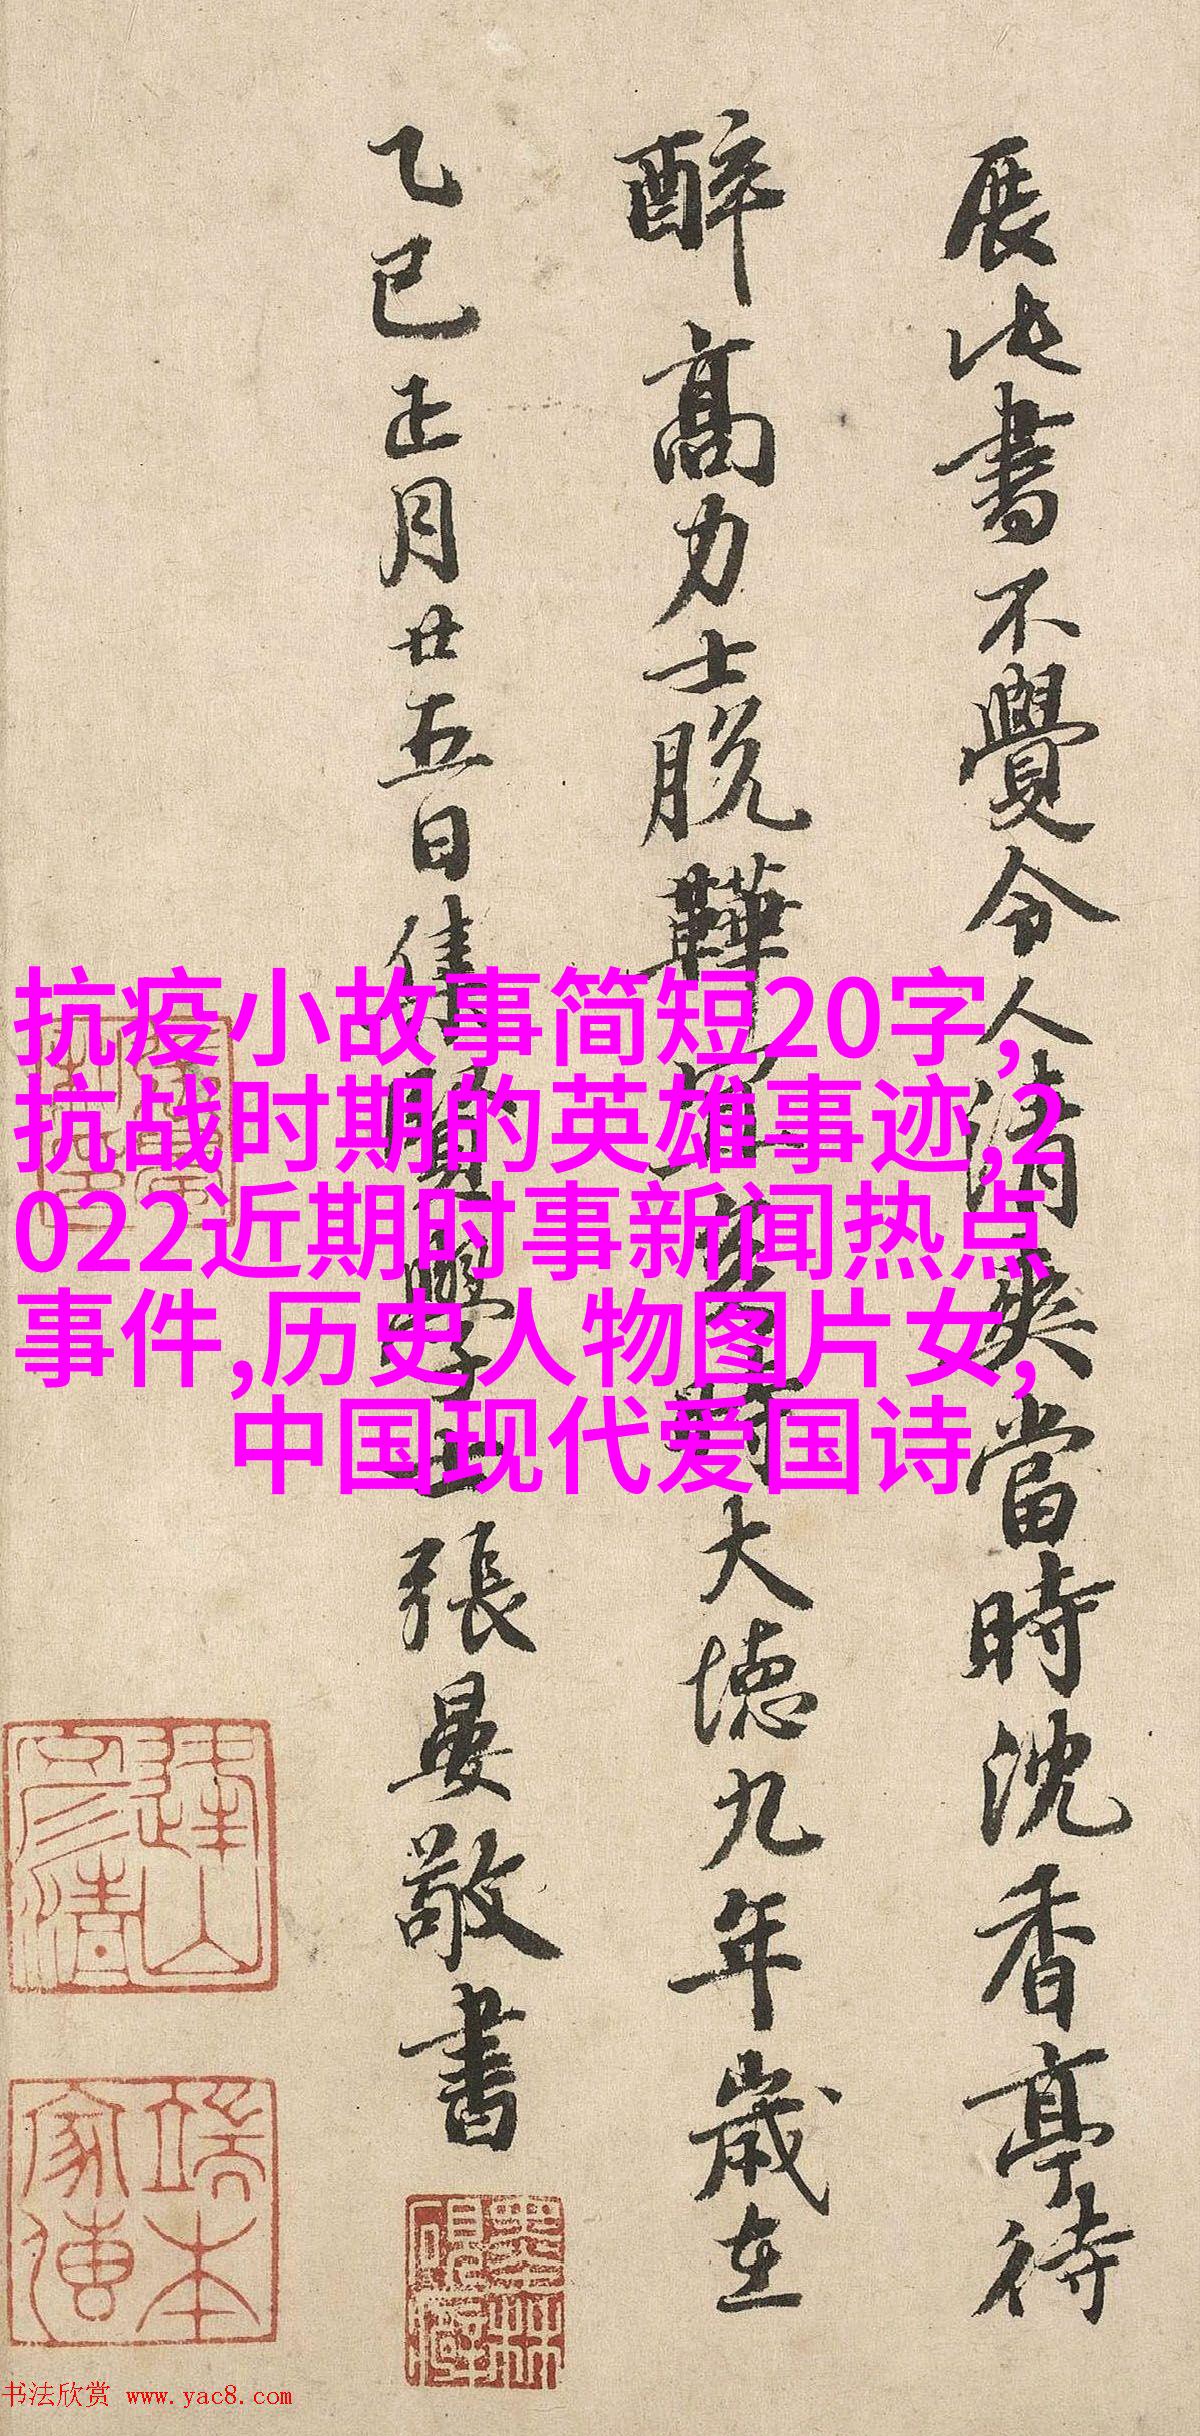 展此書不覺令人清爽當時沈香亭待
醉高力士脫鞾
大德九年歲在
乙巳正月廿五日集賢學士張晏敬書
抗疫小故事简短20字,
抗战时期的英雄事迹,2
022近期时事新闻热点
事件,历史人物图片女,
中国现代爱国诗
书法欣赏 www.yac8.com